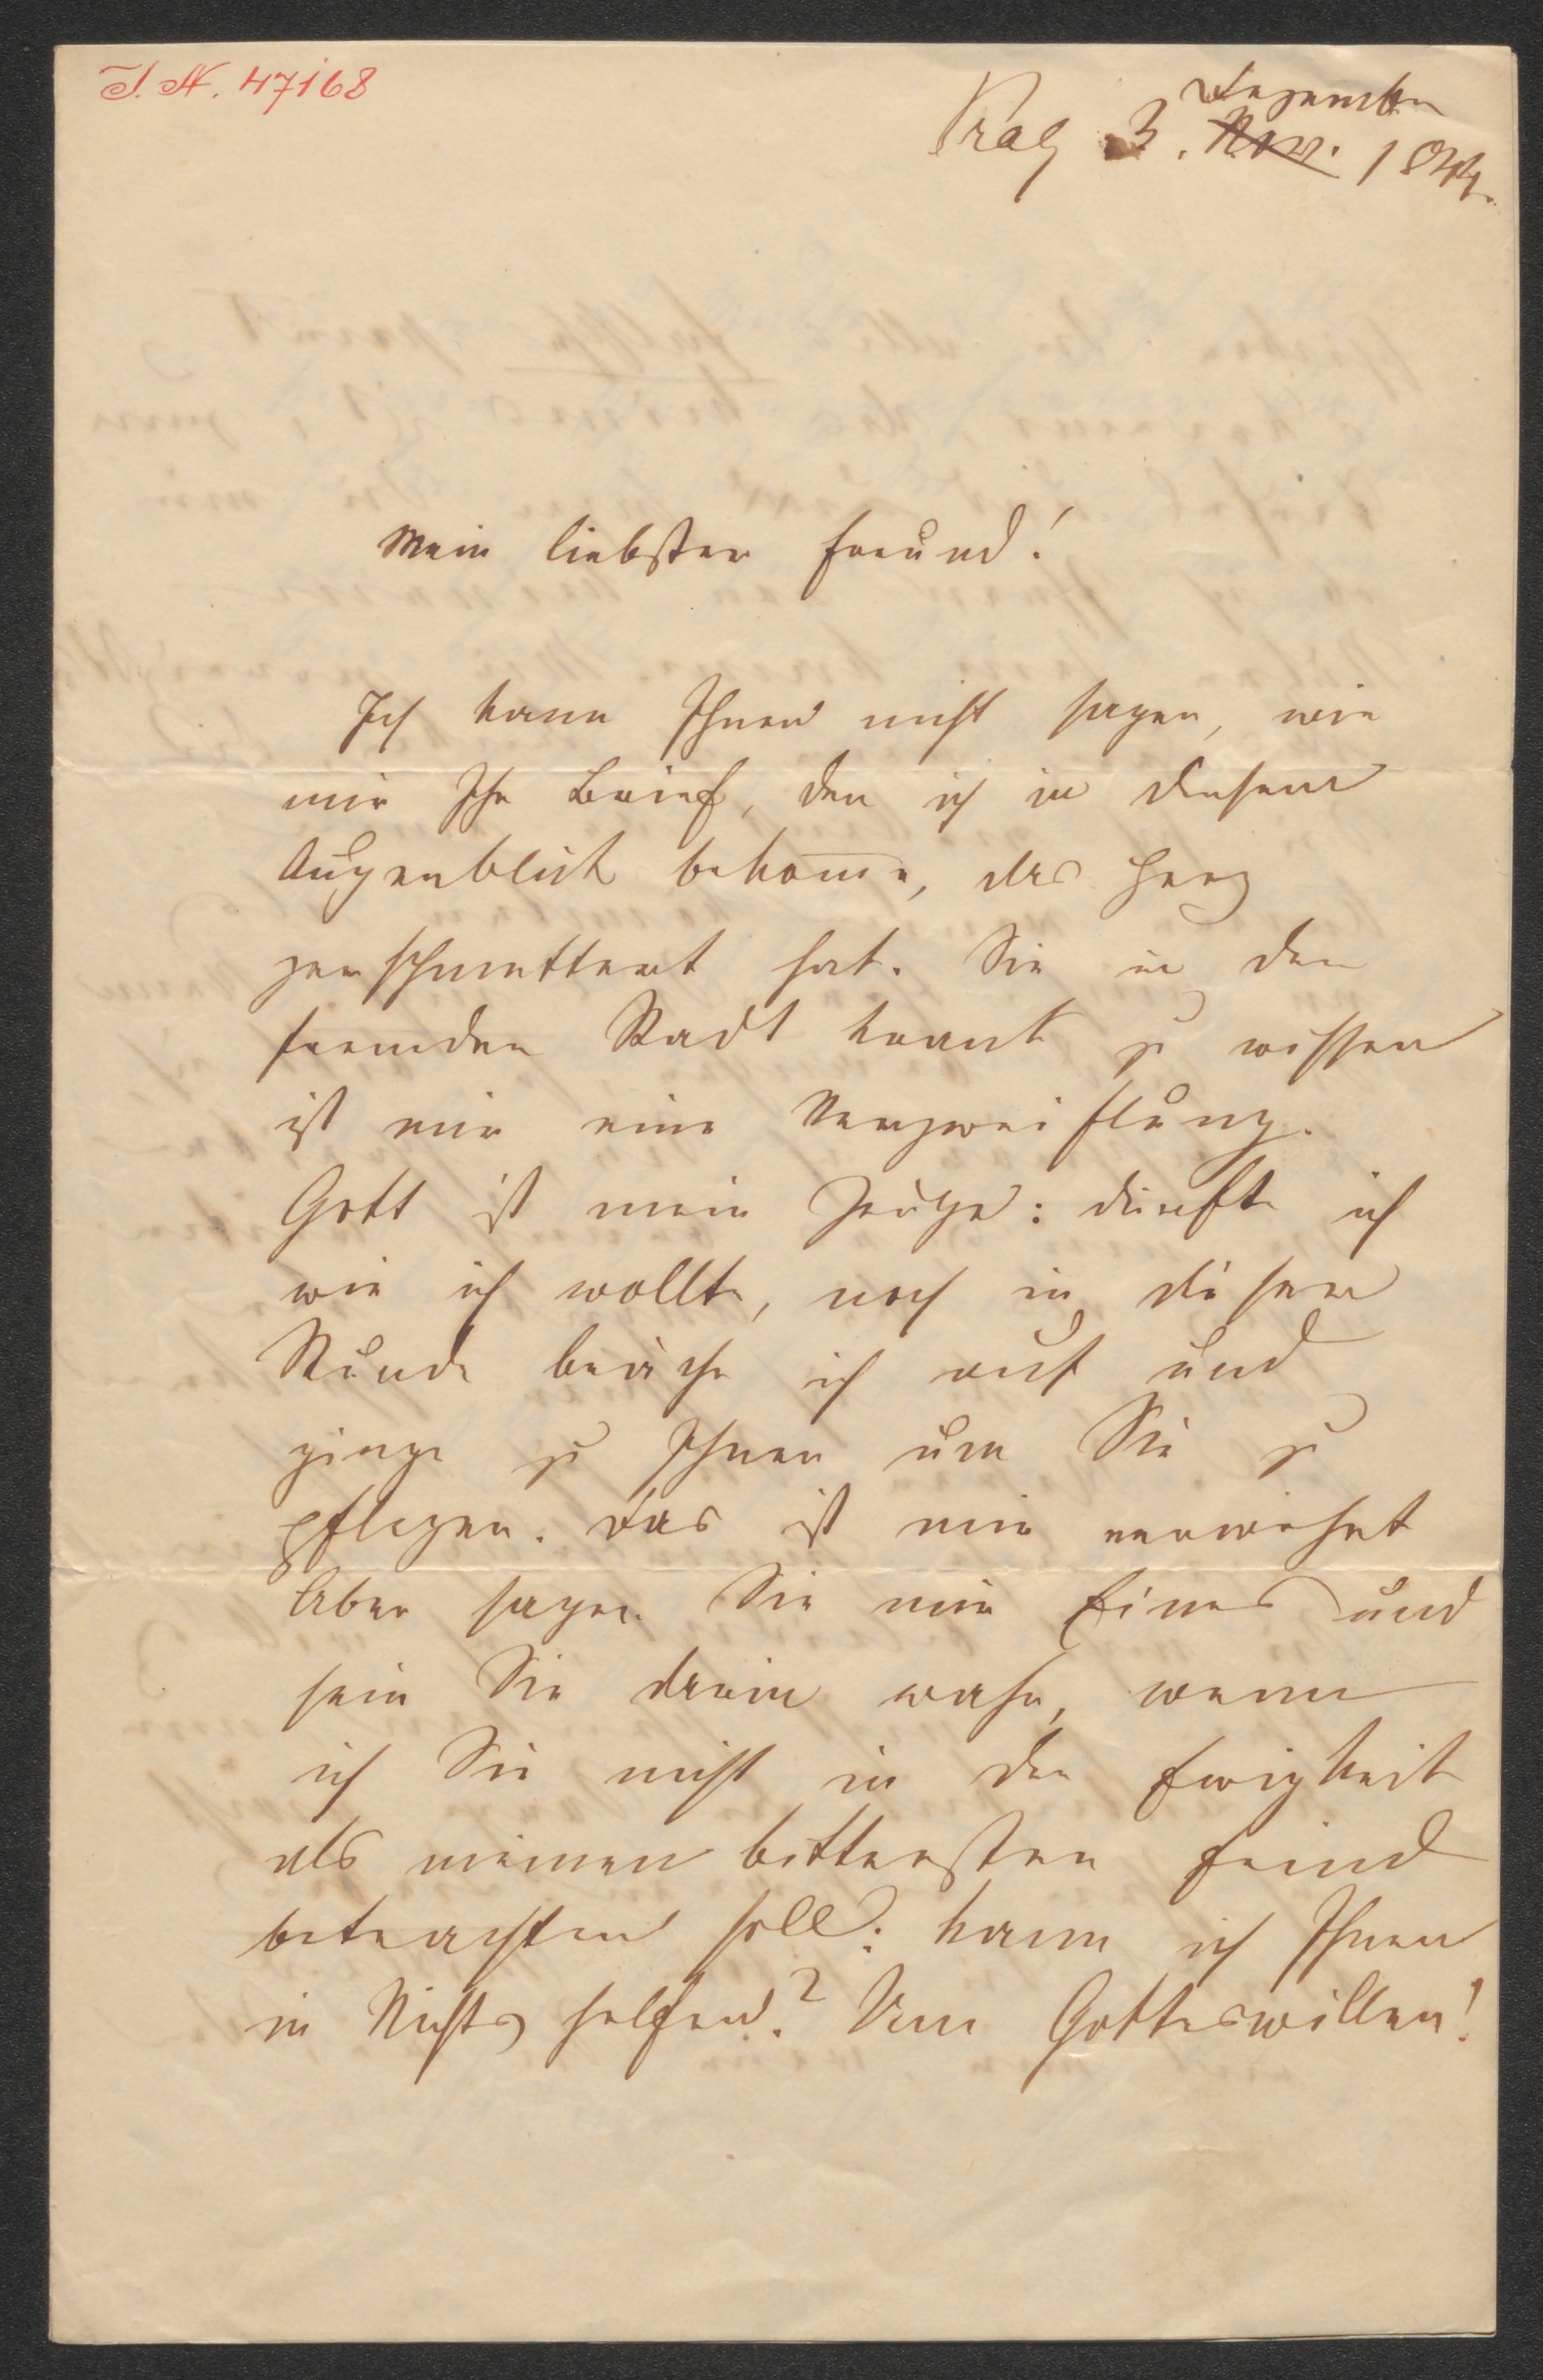 I. N. 47168
Dezember
Prag 3. Nov. 1844.
Mein liebster Freund!
Ich kann Ihnen nicht sagen, wie
mir Ihr Brief, den ich in diesem
Augenblick bekom̅e, das Herz
zerschmettert hat. Sie in der
fremden Stadt krank zu wissen
ist mir eine Verzweiflung.
Gott ist mein Zeuge: dürfte ich
wie ich wollte, noch in dieser
Stunde bräche ich auf und
ginge zu Ihnen um Sie zu
pflegen. Das ist mir verwehrt
Aber sagen Sie mir Eines und
sein Sie drein wahr, wenn
ich Sie nicht in der Ewigkeit
als meinen bittersten Feind
betrachten soll: kann ich Ihnen
in Nichts helfen? Um Gotteswillen!